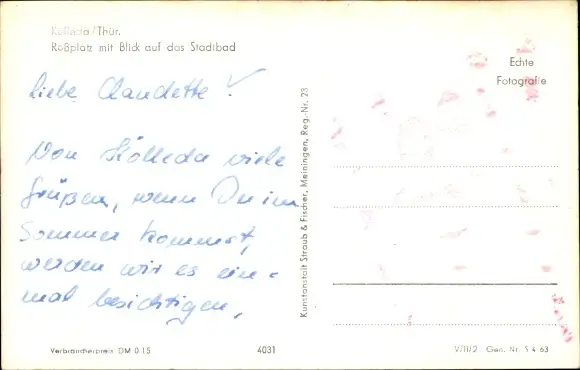 Kölleda/Thür.
Roßplatz mit Blick auf das Stadtbad
Echte
Fotografie
Liebe Claudette!
Von Kölleda viele
Grüßen, wenn Du im
Sommer kommst,
werden wir es ein-
mal besichtigen.
Kunstanstalt Straub & Fischer, Meiningen, Reg.-Nr. 23
Verbraucherpreis DM 0 15
4031
V/11/2 Gen. Nr. S 4 63